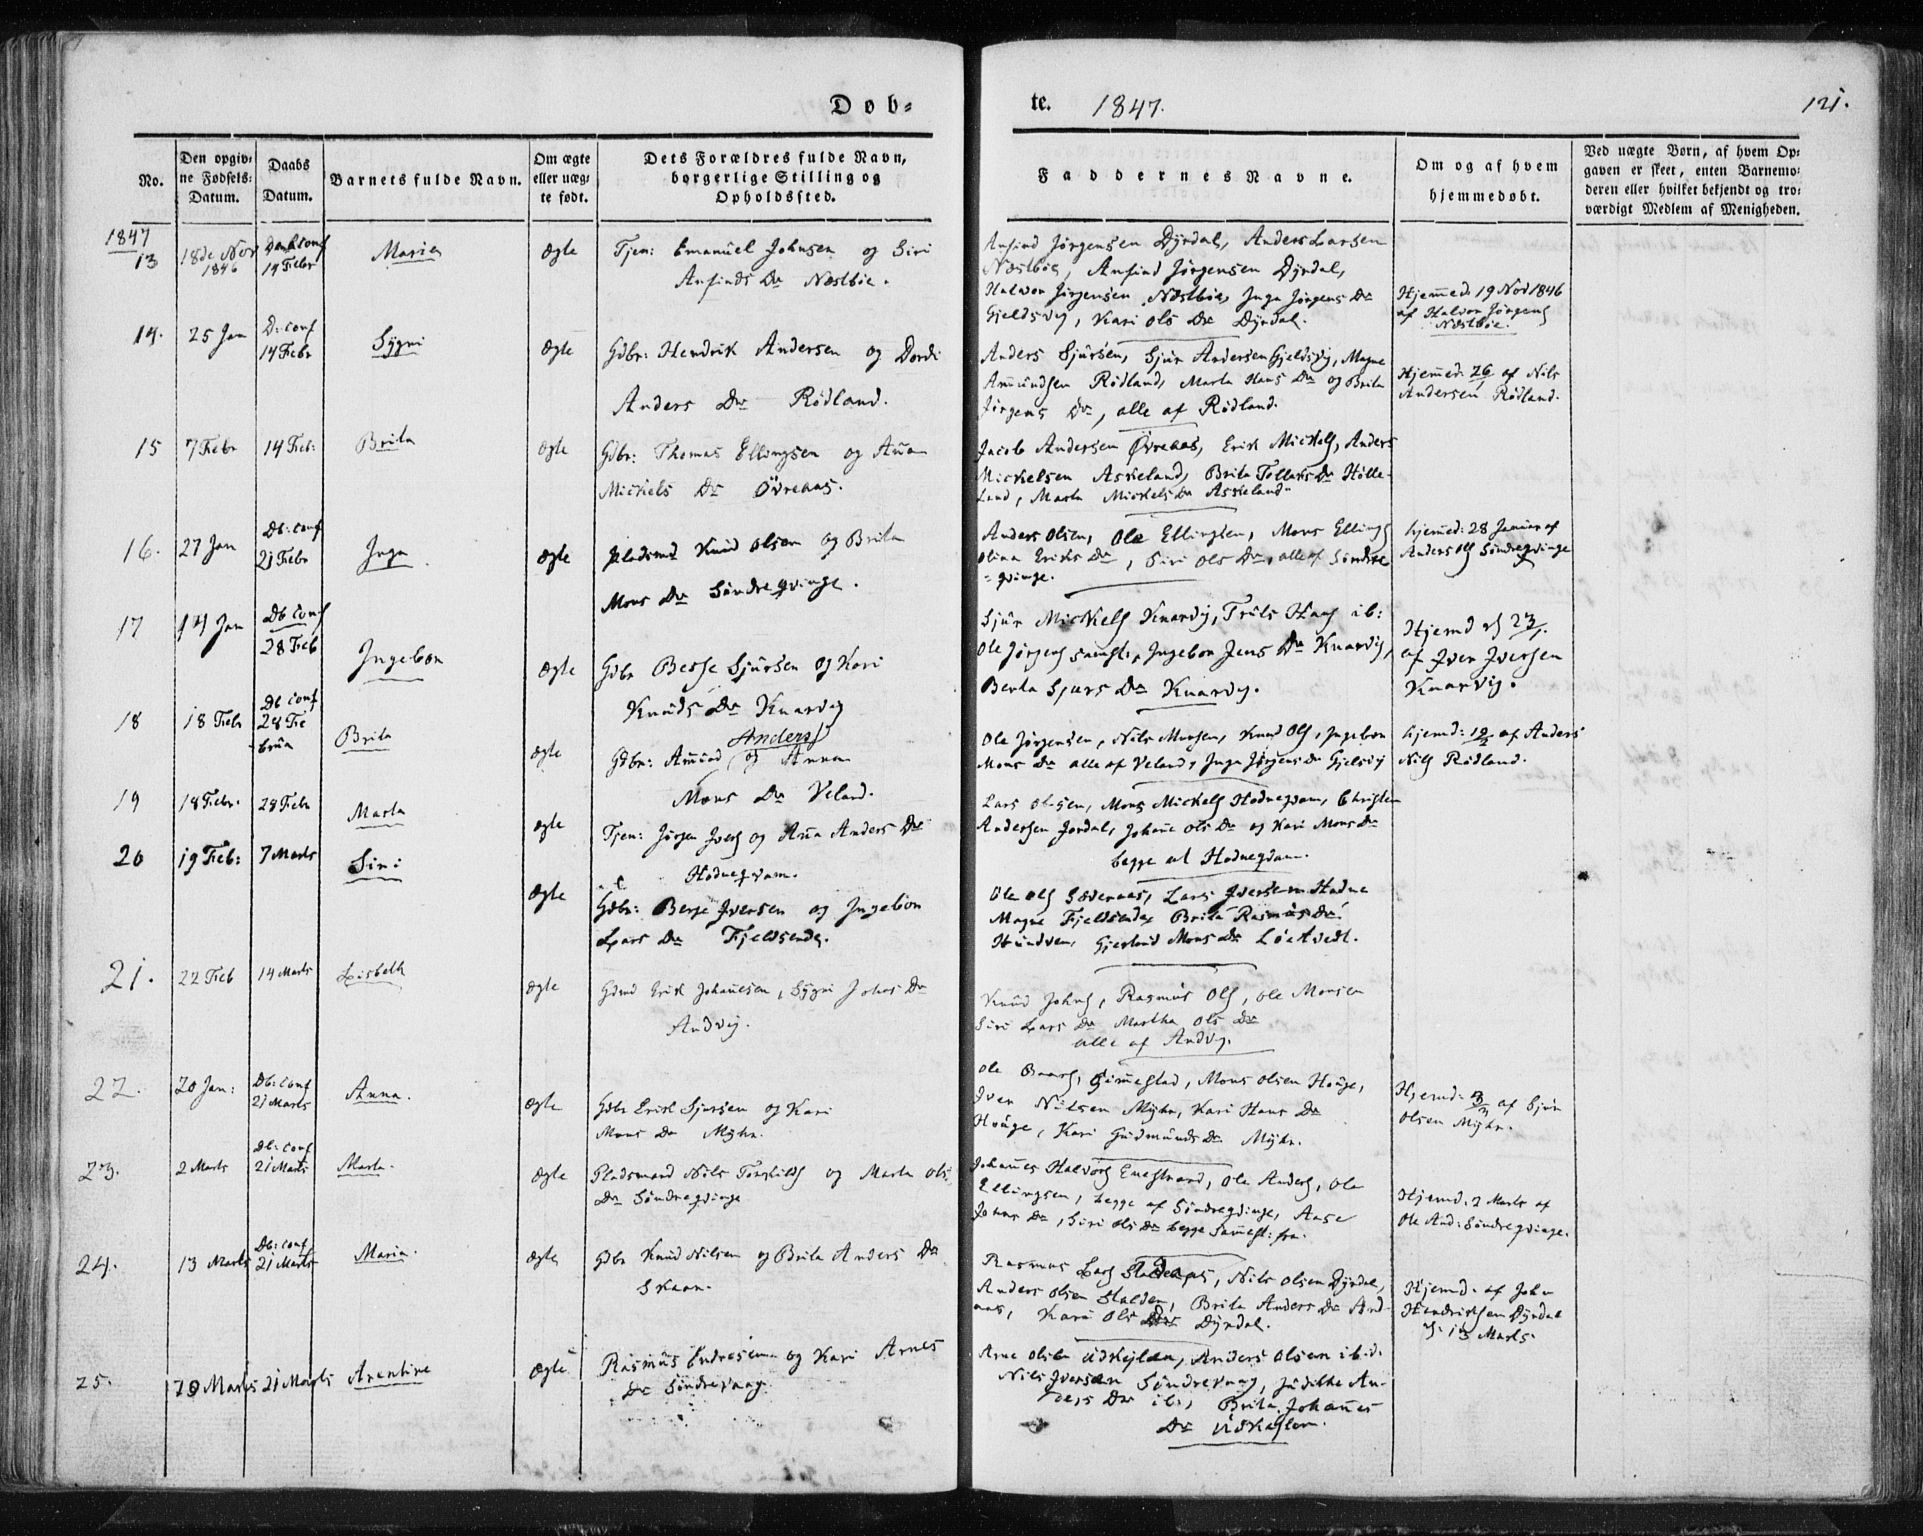 Døb-
te. 1847.
121.
No.
Den opgiv-
ne Fødsels-
Datum.
Daabs
Datum.
Barnets fulde Navn.
Om ægte
eller uæg-
te født.
Dets Forældres fulde Navn,
borgerlige Stilling og
Opholdssted.
Faddernes Navne.
Om og af hvem
hjemmedøbt.
Ved uægte Børn, af hvem Op-
gaven er skeet, enten Barnemo-
deren eller hvilket bekjendt og tro-
værdigt Medlem af Menigheden.
1847
13
18de Nov
1846
Daab conf
14 Febr
Maria
Ægte
Tjen: Emanuel Johnsen og Siri
Anfinds Dr Næstbøe.
Anfind Jørgensen Dyrdal, Anders Larsen
Næstbøe, Anfind Jørgensen Dyrdal,
Halvor Jørgensen Næstbøe, Inga Jørgens Dr
Gjeldsvig, Kari Ols Dr Dyrdal.
Hjemmed: 19 Nov 1846
af Halvor Jørgens
Næstbøe.
14.
25 Jan
D: conf
14 Febr
Sygni
Ægte
Gdbr: Hendrik Andersen og Dordi
Anders Dr Rødland.
Anders Sjursen, Sjur Andersen Gjeldsvig, Magne
Amundsen Rødland, Marta Hans Dr og Brita
Jørgens Dr, alle af Rødland.
Hjemmed: 26/1 af Nils
Andersen Rødland.
15
7 Febr
14 Feb:
Brita
Ægte
Gdbr: Thomas Ellingsen og Anna
Mickels Dr Øvreaas.
Jacob Andersen Øvreaas, Erik Mickels, Anders
Mickelsen Askeland, Brita Tollaks Dr Hølle-
land, Marta Mickels Dr Askeland.
16.
27 Jan
Db: conf
21 Febr
Inga
Ægte
Pladsmd Knud Olsen og Brita
Mons Dr Søndreqvinge.
Anders Olsen, Ole Ellingsen, Mons Ellings
Olina Eriks Dr, Siri Ols Dr, alle af Søndre
=qvinge.
hjemmed: 28 Januar af
Anders Ols Søndreqvinge
17
14 Jan
Db conf
28 Feb
Ingebor
Ægte
Gdbr Berge Sjursen og Kari
Knuds Dr Knarvig
Sjur Mickels Knarvig, Truls Haag ib:
Ole Jørgens sammest., Ingebor Jens Dr Knarvig,
Berta Sjurs Dr Knarvig.
Hjemd d 23/1.
af Iver Iversen
Knarvig.
18
18 Febr
Db conf
28 Fe
brua
Brita
Ægte
Anders
Gdbr: Amund og Anna
Mons Dr Veland.
Ole Jørgensen, Nils Monsen, Knud Ols, Ingebor
Mons Dr alle af Veland, Inga Jørgens Dr Gjelsvig
hjemd: 19/2 af Anders
Nils Rødland.
19
18 Febr.
28 Febr
Marta
Ægte
Tjen: Jørgen Ivers og Anna Anders Dr
Hodneqvam.
Lars Olesen, Mons Mickels Hodneqvam, Christen
Andersen Jordal, Johane Ols Dr og Kari Mons Dr
begge at Hodneqvam.
20
19 Feb:
7 Marts
Siri
Ægte
Gdbr: Berge Iversen og Ingebor
Lars Dr Fjeldsende.
Ole Ols Sævraas, Lars Iversen Hodne
Magne Fjeldsende, Brita Rasmus Dr
Hundven, Gjertrud Mons Dr Løetvedt.
21.
22 Feb
14 Marts
Lisbeth
Ægte
Gdmd Erik Johanesen, Sygni Johns Dr
Andvig.
Knud Johns, Rasmus Ols, Ole Monsen
Siri Lars Dr Martha Ols Dr
alle af Andvig.
22.
20 Jan:
Db: conf
21 Marts
Anna.
Ægte
Gdbr Erik Sjursen og Kari
Mons Dr Myhr.
Ole Baars, Gimmestad, Mons Olsen Houge,
Iver Nilsen Myhr, Kari Hans Dr
Houge, Kari Gudmunds Dr Myhr.
Hjemd: af Sjur
Olsen Myhr.
23.
2 Marts
Db: conf
21 Marts
Marta.
Ægte
Pladsmand Nils Torkilds og Marta Ols
Dr Søndreqvinge
Johannes Halvors Enestrand, Ole Anders, Ole
Ellingsen, begge af Søndreqvinge, Aase
Jonas Dr, Siri Ols Dr begge sammest: fra.
Hjemd: 2 Marts af
Ole And: Søndreqvinge.
24.
13 Marts
Db: conf
21 Marts
Maria.
Ægte
Gdbr Knud Nilsen og Brita Anders Dr
Skaar.
Rasmus Lars, Nils Olsen Dyrdal,
Anders Olsen Halden, Brita Anders Dr And-
aas, Kari Ols Dr Dyrdal.
Hjemd. af John
Hendriksen Dyrdal
d: 13 Marts.
25.
20 Marts
21 Marts
Arentine
Ægte
Rasmus Endresen og Kari Arnes
Dr Søndrevaag
Arne Olsen Udkejlen, Anders Olsen ibid.
Nils Iversen Søndrevaag, Judithe An-
ders Dr ib., Brita Johannes
Dr Udkejlen.